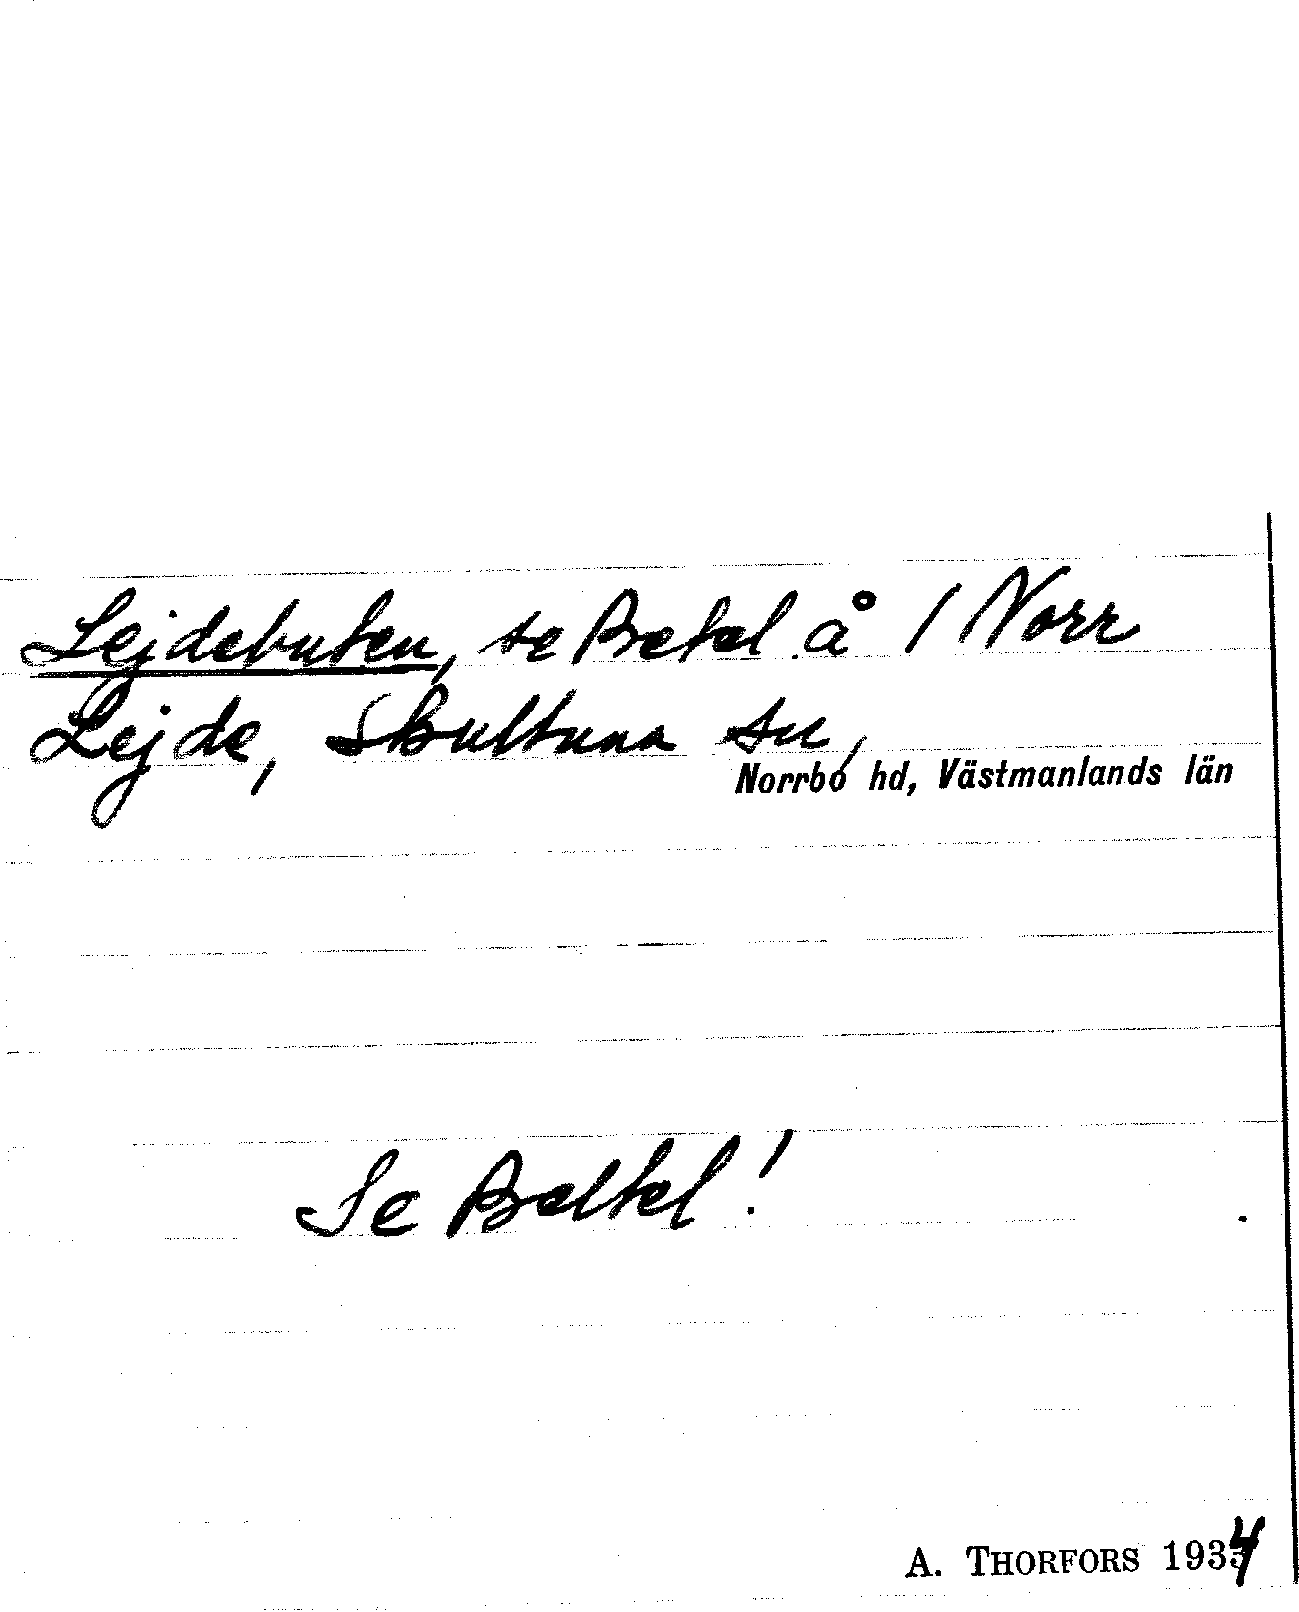 Lejdebuten, se Betel å 1 Norr
Lejde, Skultuna sn,
Norrbo hd, Västmanlands län
Se Beltel!
A. THORFORS 1934